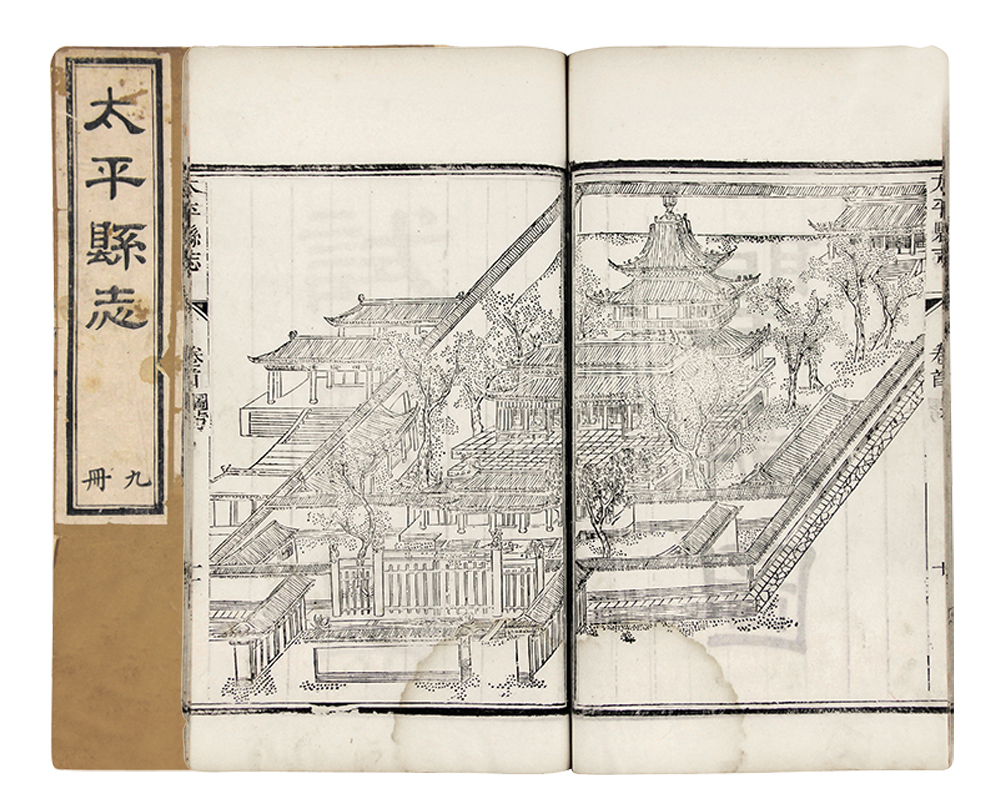 太平縣志
九冊
太平縣志
卷首
圖考
十
太平縣志
卷首
十